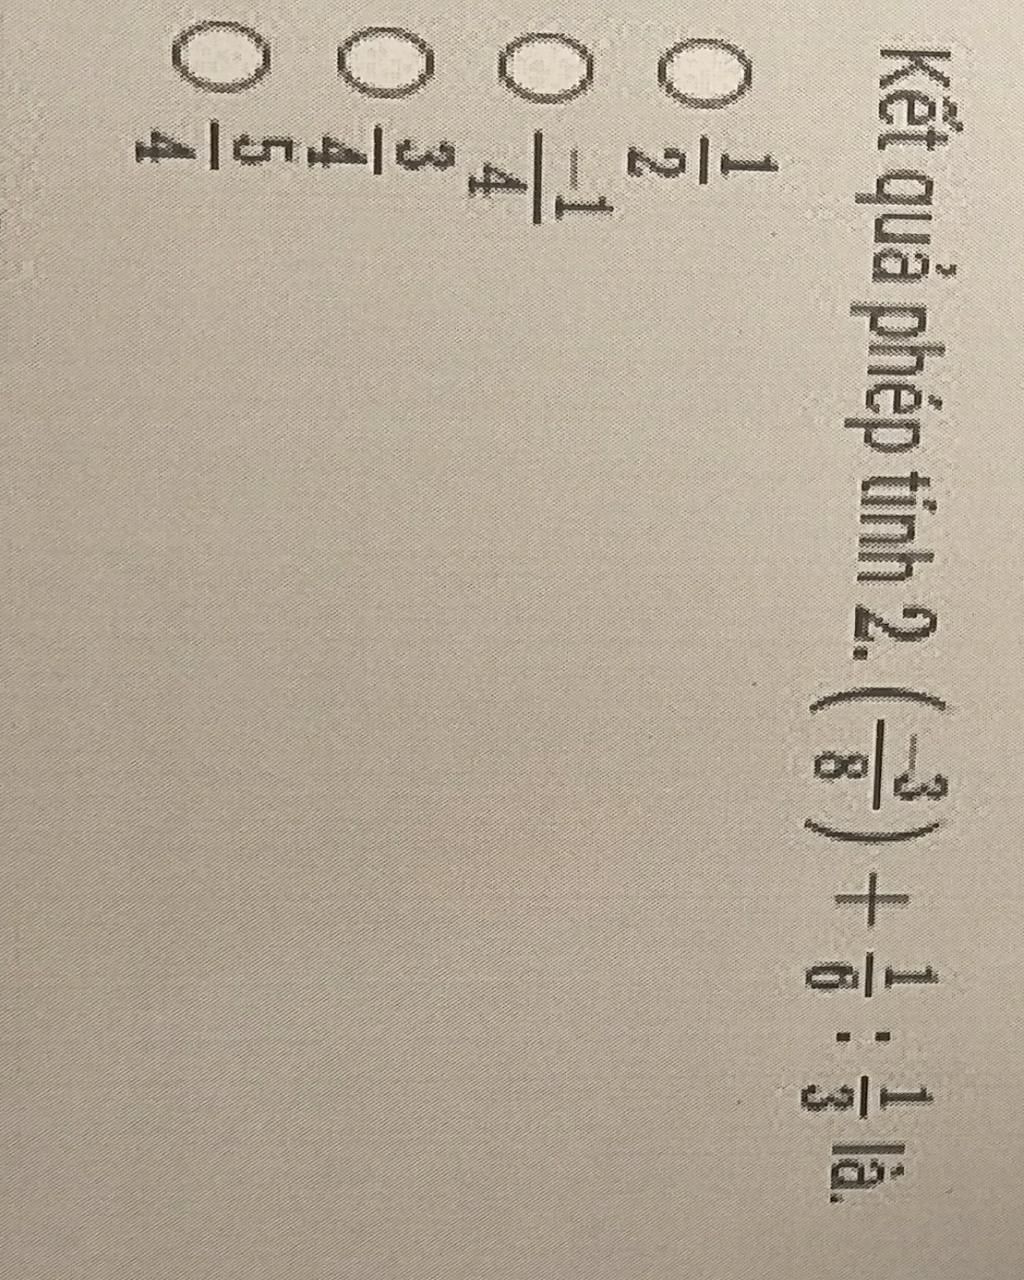 Kết quả phép tính 2. (-3/8) + 1/6 : 1/3 là.
1/2
-1/4
3/4
5/4